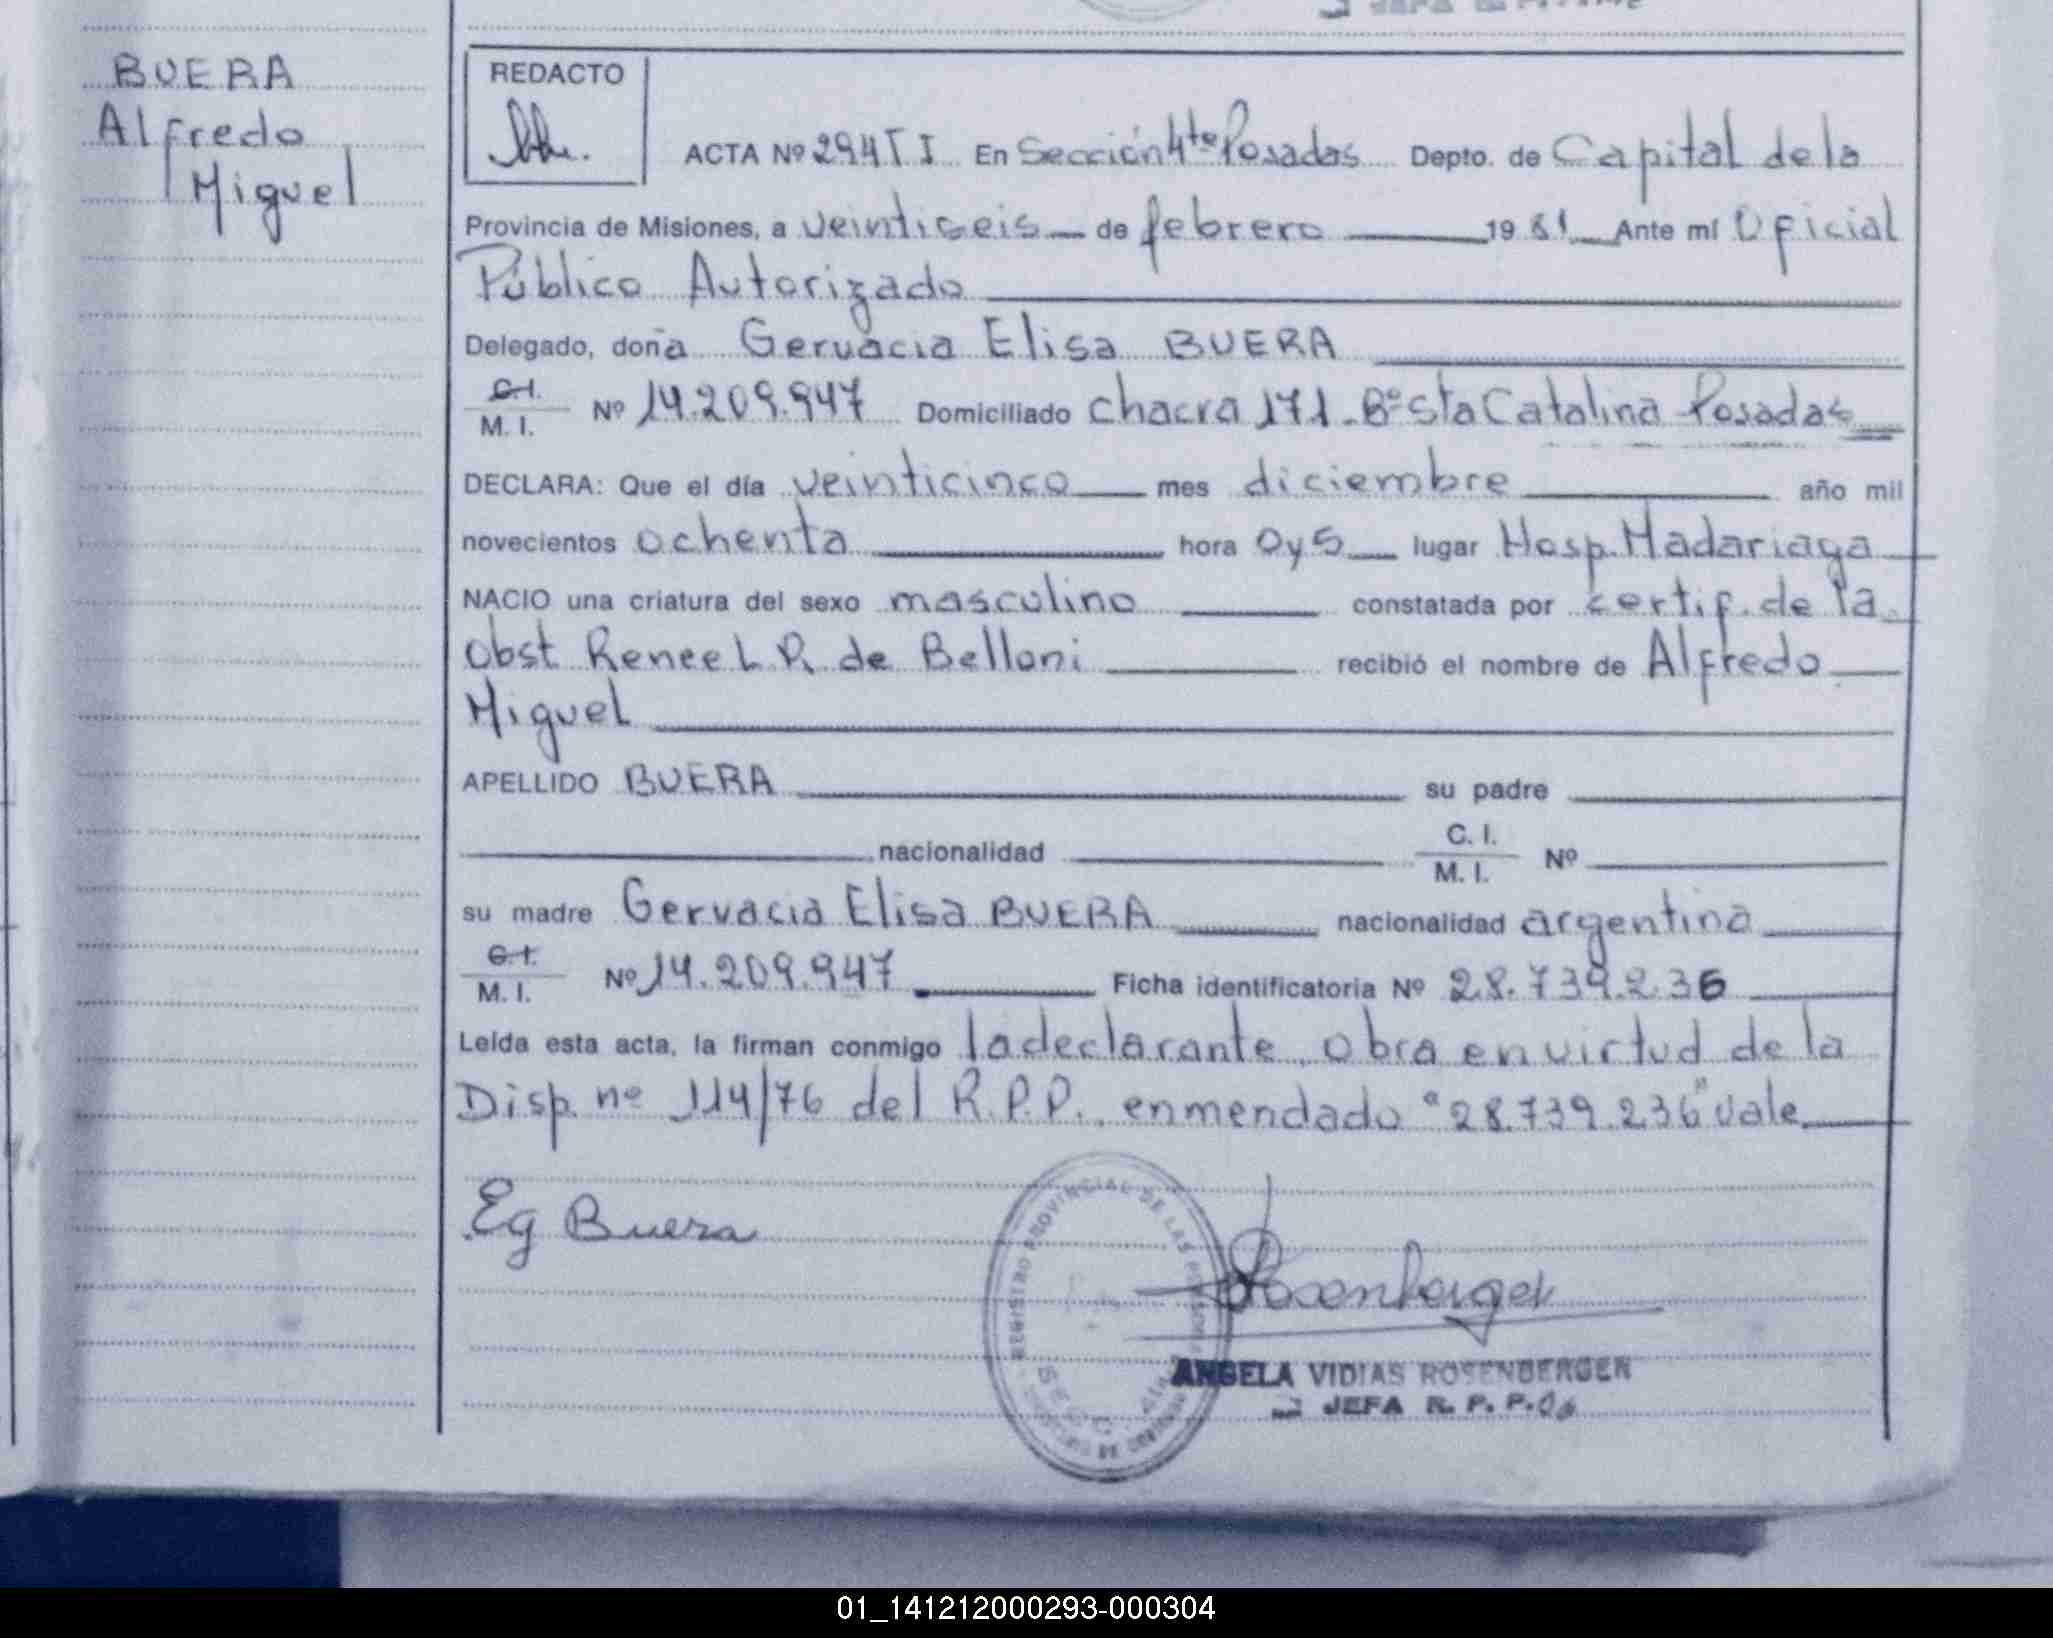 BUERA
Alfredo
Miguel
REDACTO
ACTA Nº 294 T I En Sección 4ta Posadas Depto. de Capital de la
Provincia de Misiones, a veintiseis de febrero 19 81 Ante mí Oficial
Público Autorizado
Delegado, doña Gervacia Elisa BUERA
C.I.
M. I. Nº 14.209.947 Domiciliado chacra 171 - Bº Sta Catalina Posadas
DECLARA: Que el día veinticinco mes diciembre año mil
novecientos ochenta hora 0 y 5 lugar Hosp. Madariaga
NACIO una criatura del sexo masculino constatada por certif. de la
Obst Renee L P. de Belloni recibió el nombre de Alfredo
Miguel
APELLIDO BUERA su padre
nacionalidad C. I.
M. I. Nº
su madre Gervacia Elisa BUERA nacionalidad argentina
C.I.
M. I. Nº 14.209.947 Ficha identificatoria Nº 28.739.236
Leída esta acta, la firman conmigo la declarante, obra en virtud de la
Disp. nº 114/76 del R.P.P., enmendado "28.739.236" vale
Eg Buera
REGISTRO PROVINCIAL DE LAS
Rosenberger
ANGELA VIDIAS ROSENBERGER
JEFA R. P. P.
01_141212000293-000304